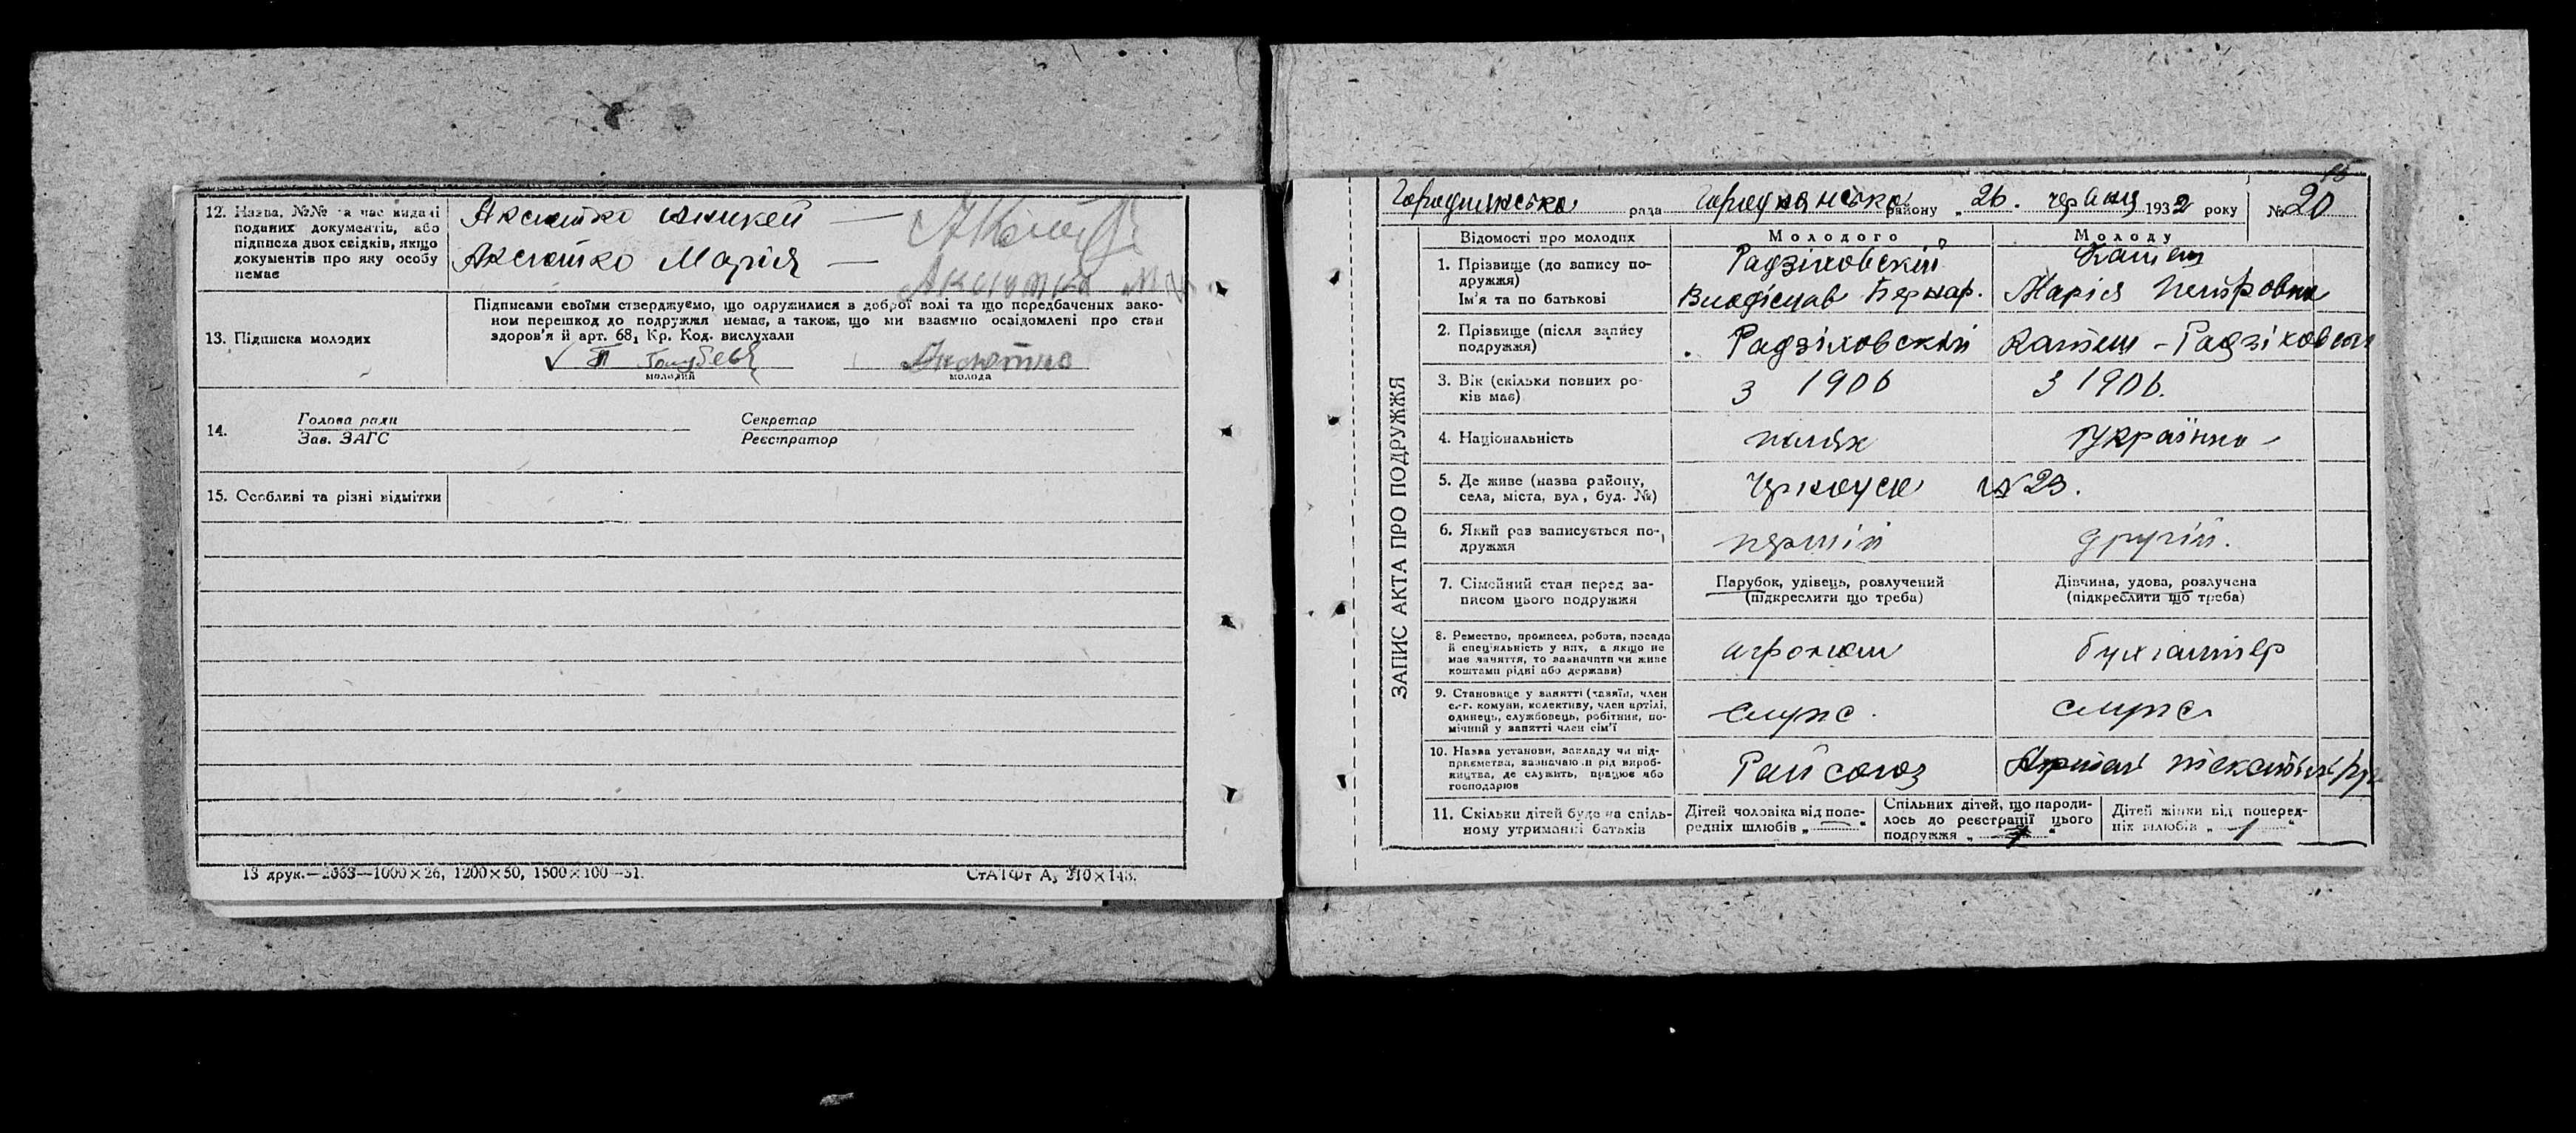 12. Назва, №№ та час видачі
поданих документів, або
підписка двох свідків, якщо
документів про яку особу
немає
Аксютко
Аксютко Марія —
13. Підписка молодих
Підписами своїми стверджуємо, що одружилися з доброї волі та що передбачених зако-
ном перешкод до подружжя немає, а також, що ми взаємно освідомлені про стан
здоров'я й арт. 68₁ Кр. Код. вислухали
молодий
молода
14.
Голова ради
Зав. ЗАГС
Секретар
Реєстратор
15. Особливі та різні відмітки
13 друк.—2063—1000×26, 1200×50, 1500×100—31.
СтАТФт А₅ 210×148.
ЗАПИС АКТА ПРО ПОДРУЖЖЯ
Городнянська рада Городнянська району „ 26. червня 1932 року № 20
Відомості про молодих
Молодого
Молоду
1. Прізвище (до запису по-
дружжя)
Ім'я та по батькові
Радзіховский
Владіслав Бернар.
Марія Петровна
2. Прізвище (після запису
подружжя)
Радзіховский
3. Вік (скільки повних ро-
ків має)
з 1906
з 1906.
4. Національність
поляк
українка
5. Де живе (назва району,
села, міста, вул, буд. №)
№ 23.
6. Який раз записується по-
дружжя
перший
другий.
7. Сімейний стан перед за-
писом цього подружжя
Парубок, удівець, розлучений
(підкреслити що треба)
Дівчина, удова, розлучена
(підкреслити що треба)
8. Ремество, промисел, робота, посада
й спеціяльність у них, а якщо не
має заняття, то зазначити чи живе
коштами рідні або держави)
агроном
бухгалтер
9. Становище у занятті (хазяїн, член
с.-г. комуни, колективу, член артілі,
одинець, службовець, робітник, по-
мічний у занятті член сім'ї
служ.
служ.
10. Назва установи, закладу чи під-
приємства, зазначаючи рід вироб-
ництва, де служить, працює або
господарює
Райсоюз
Артіль
11. Скільки дітей буде на спіль-
ному утриманні батьків
Дітей чоловіка від попе-
редніх шлюбів „ — “
Спільних дітей, що народи-
лось до реєстрації цього
подружжя „
Дітей жінки від поперед-
ніх шлюбів „ 1 “